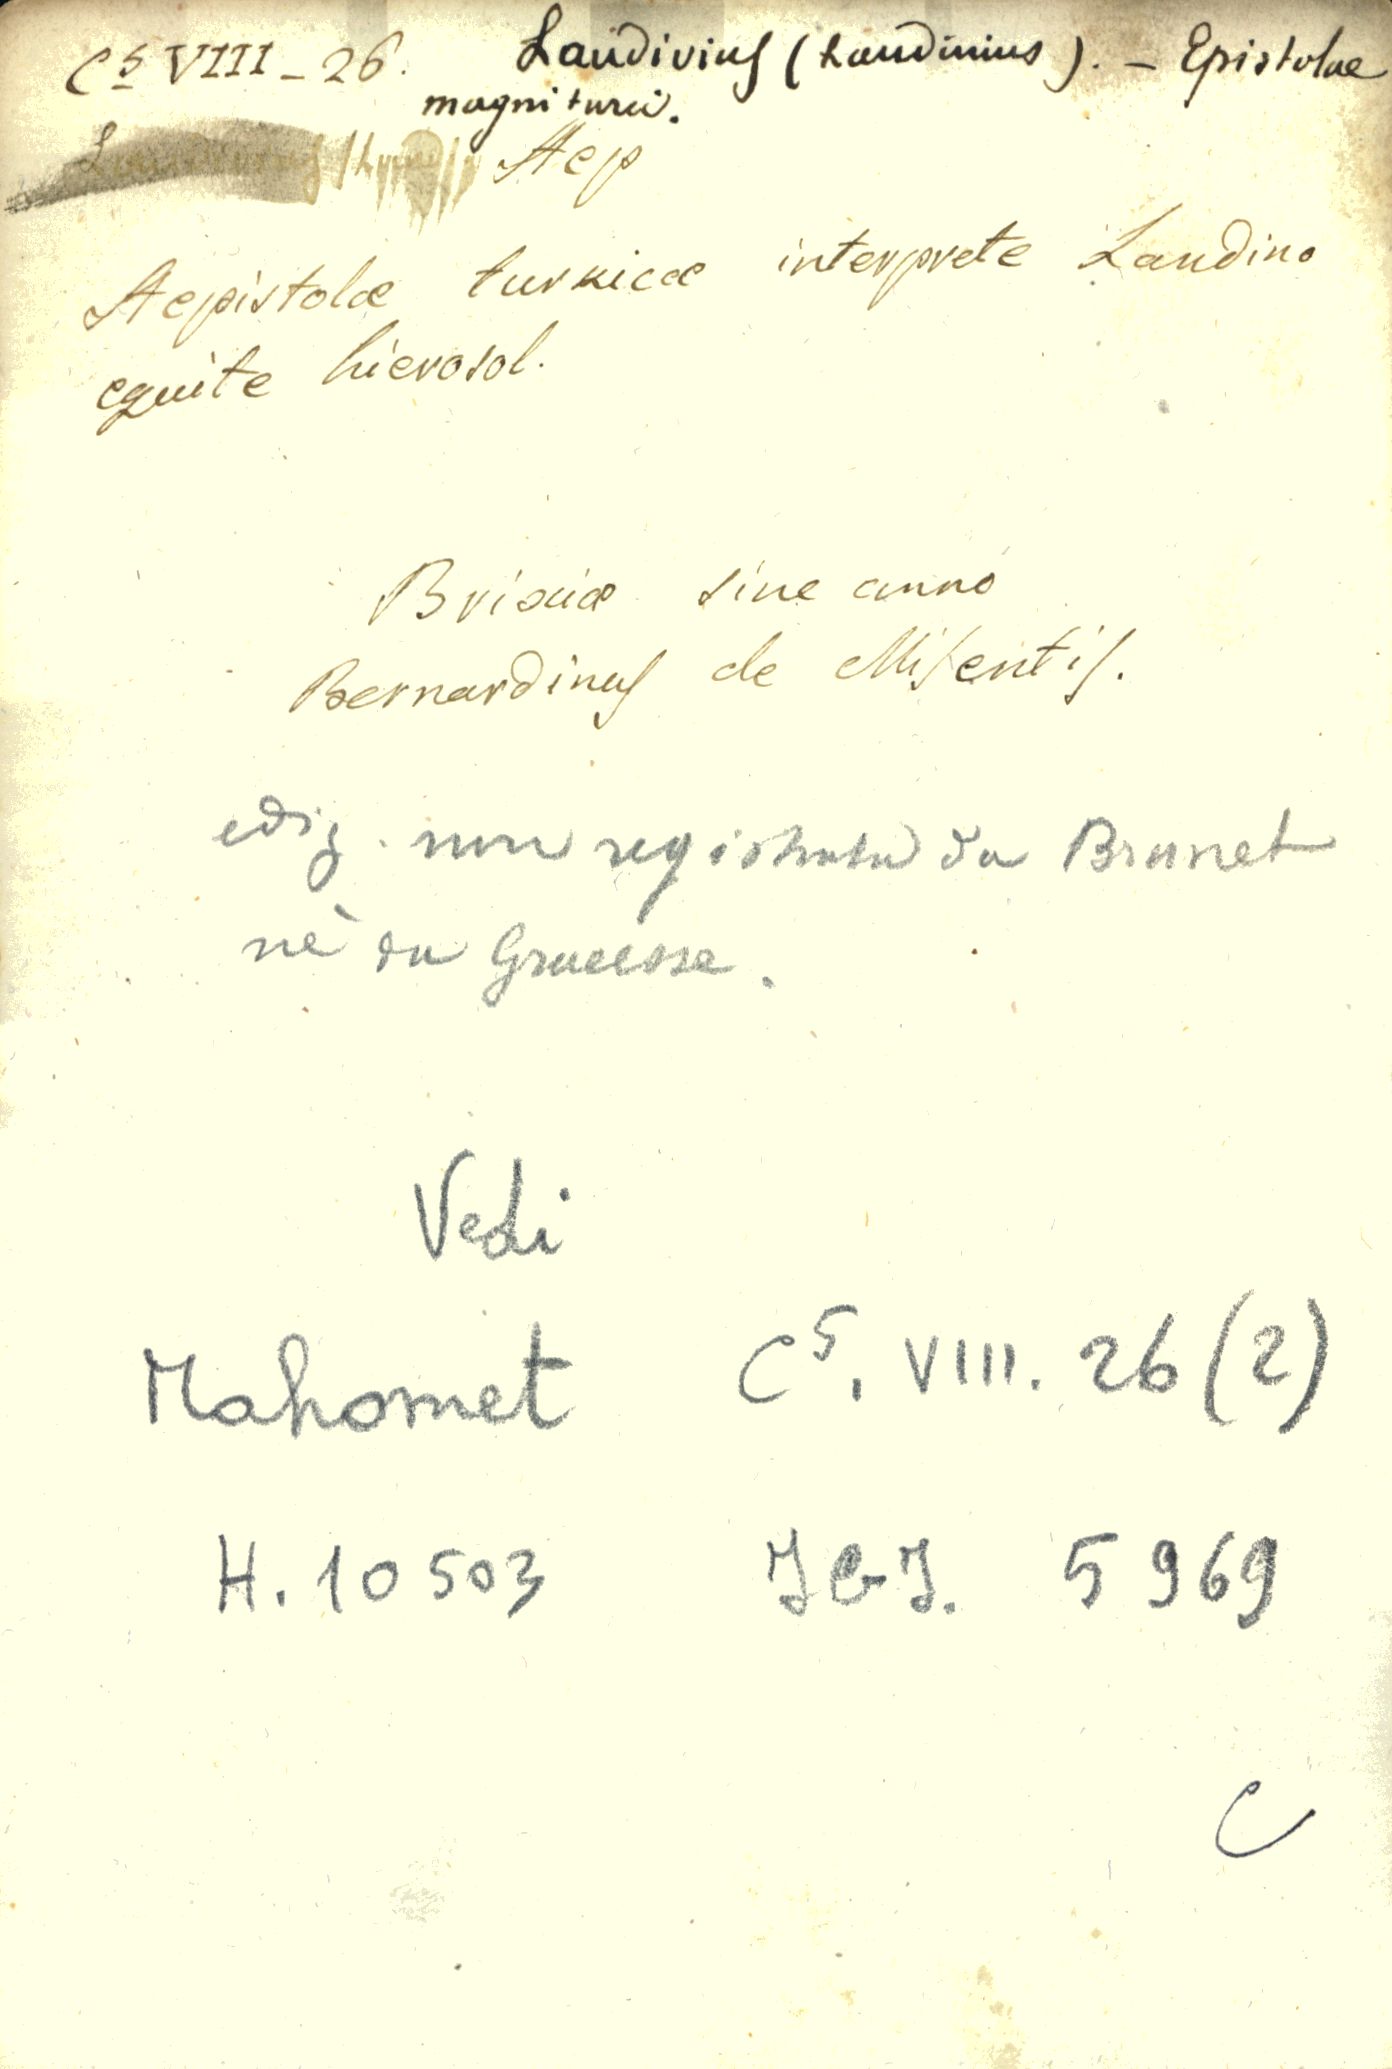 C⁵ VIII - 26. Laudivius (Laudinius). - Epistolae
magni turci.
Aep
Aepistolæ turkicæ interprete Laudino
equite hierosol.
Brixiæ sine anno
Bernardinus de Misentis.
ediz. non registrata da Brunet
nè da Graesse.
Vedi
Mahomet C⁵. VIII. 26 (2)
H. 10503 IGI. 5969
C